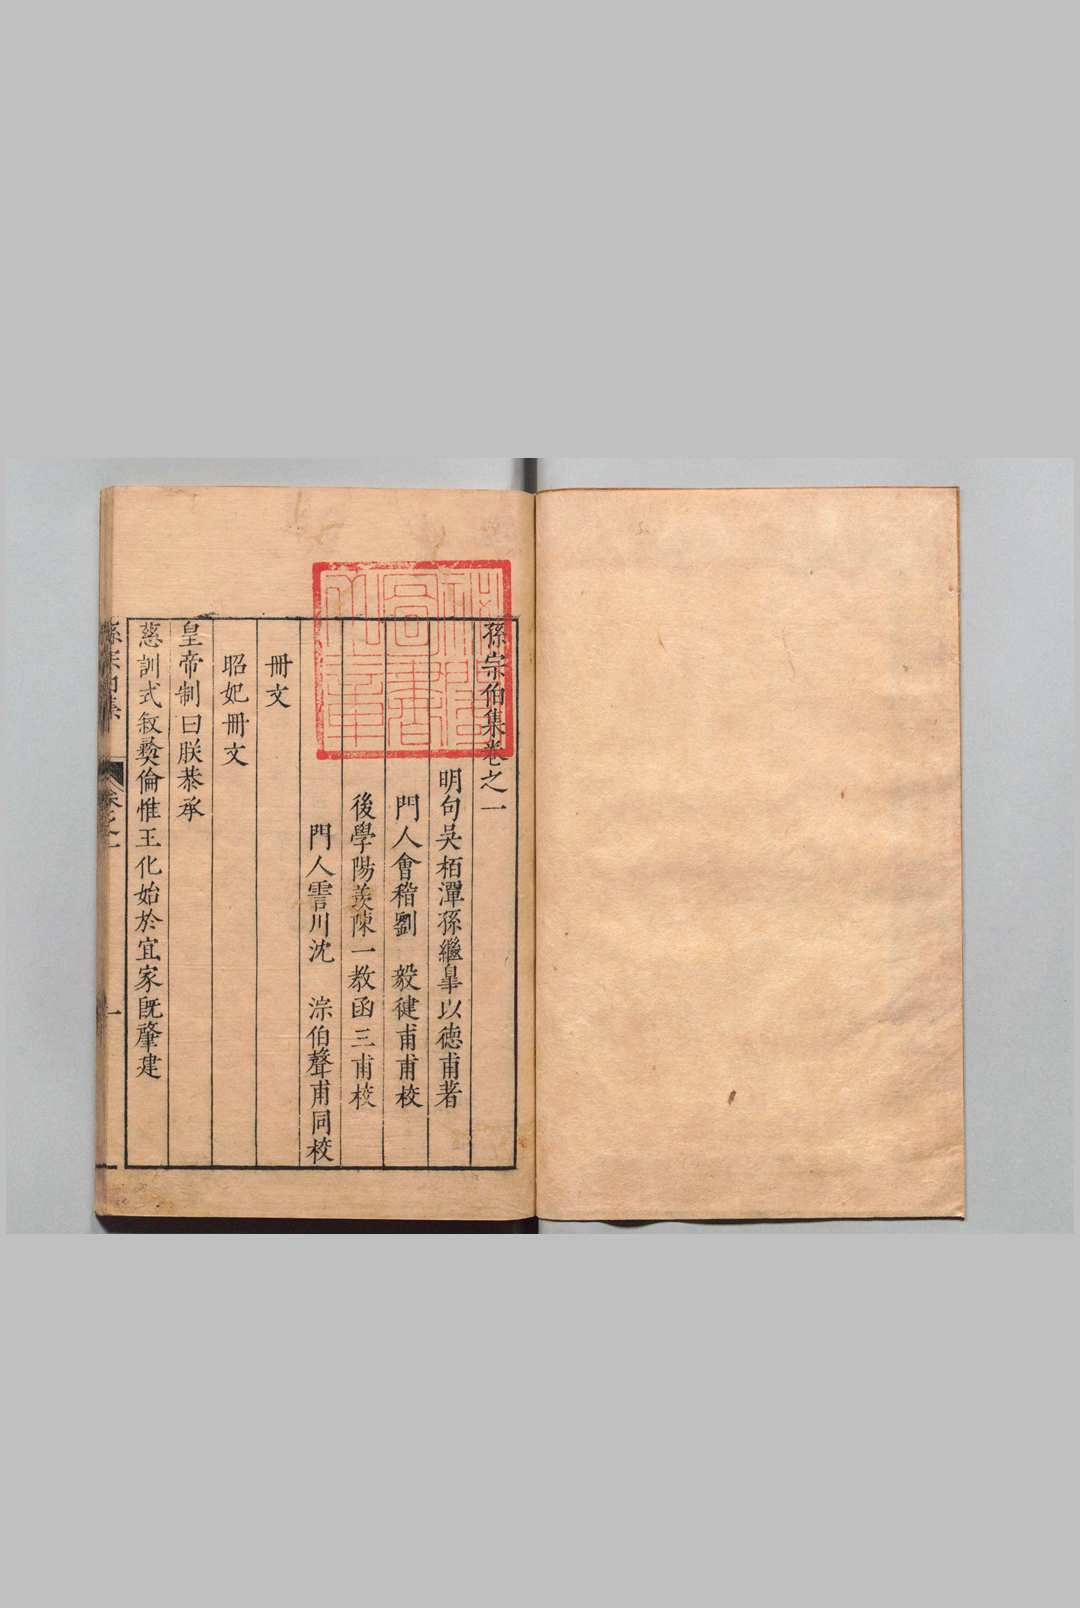 孫宗伯集卷之一
明句吳栢潭孫繼臯以德甫著
門人會稽劉 毅健甫甫校
後學陽羨陳一教函三甫校
門人霅川沈 淙伯聲甫同校
冊文
昭妃冊文
皇帝制曰朕恭承
慈訓式叙彜倫惟王化始於宜家旣肇建
孫宗伯集 卷之一 一